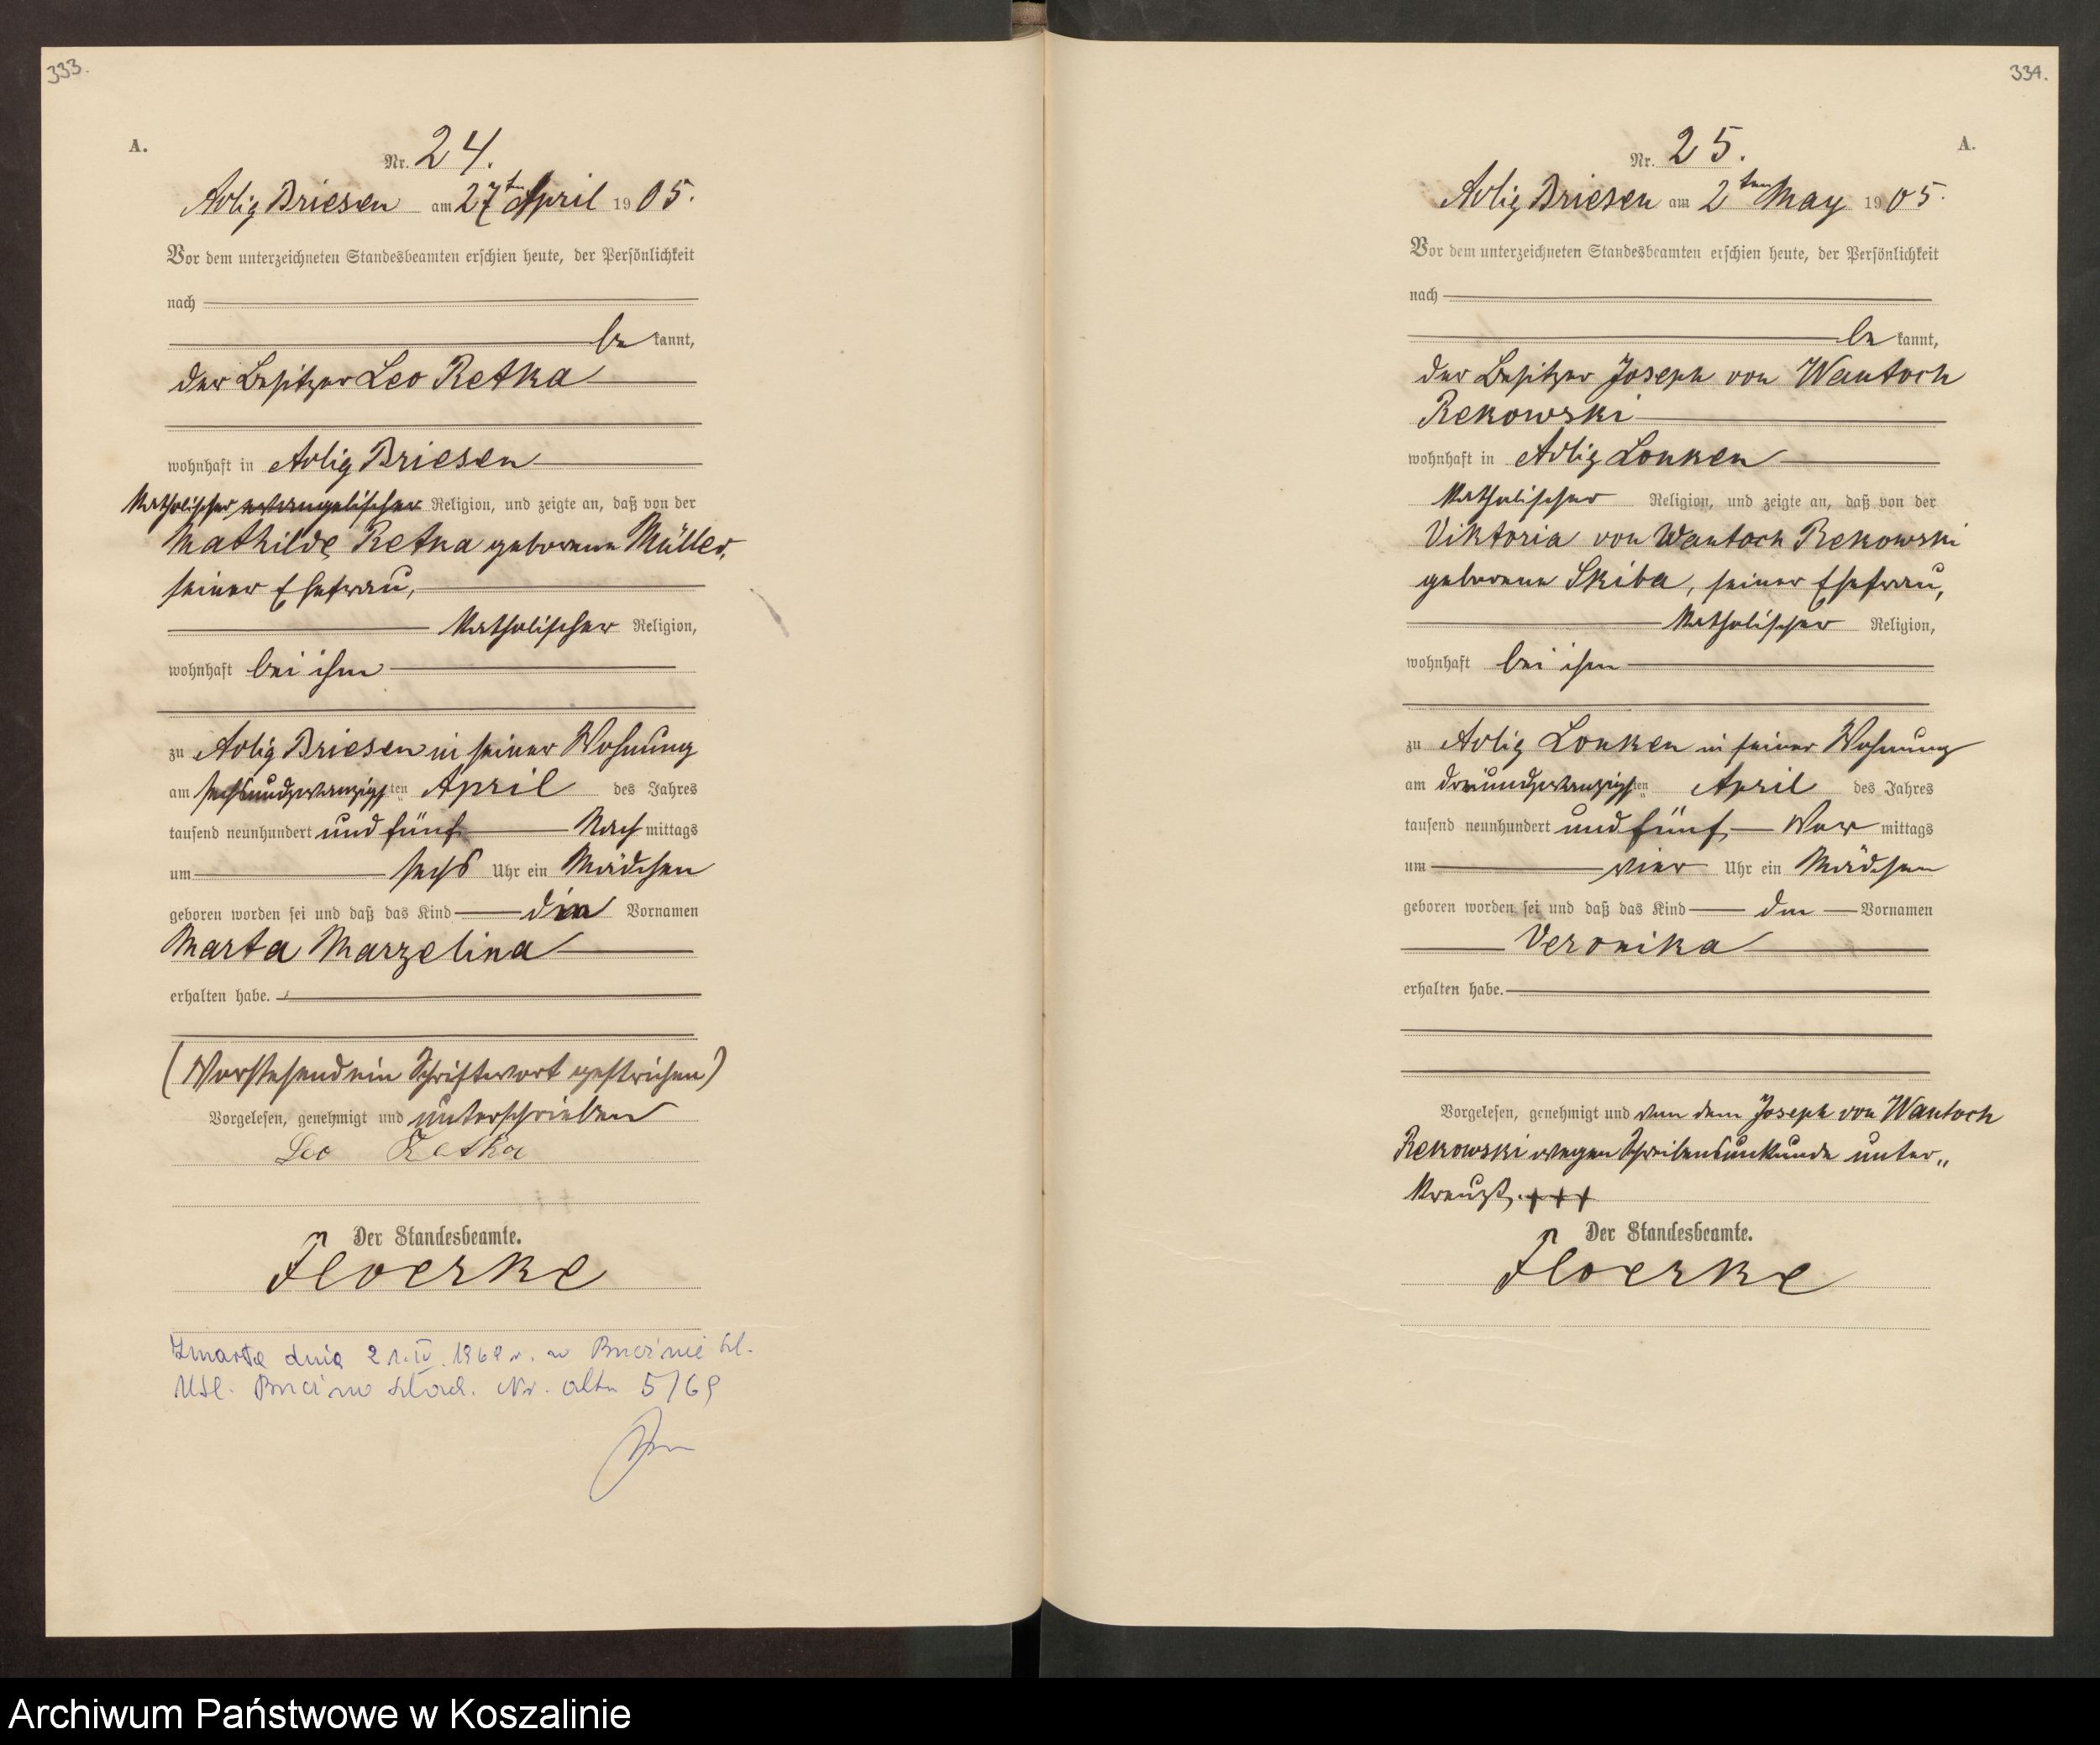 333.
A.
Nr. 24.
Adlig Briesen am 27ten April 1905.
Vor dem unterzeichneten Standesbeamten erschien heute, der Persönlichkeit
nach
be kannt,
der Besitzer Leo Retka
wohnhaft in Adlig Briesen
katholischer evangelischer Religion, und zeigte an, daß von der
Mathilde Retka geborene Müller,
seiner Ehefrau,
katholischer Religion,
wohnhaft bei ihm
zu Adlig Briesen in seiner Wohnung
am sechsundzwanzigsten April des Jahres
tausend neunhundert und fünf Nach mittags
um sechs Uhr ein Mädchen
geboren worden sei und daß das Kind die Vornamen
Marta Marzelina
erhalten habe.
(Vorstehend ein Schriftwort gestrichen)
Vorgelesen, genehmigt und unterschrieben
Leo Retka
Der Standesbeamte.
Floerke
Zmarła dnia 21.IV.1969 r. w
USC. Nr. aktu 5/69
334.
A.
Nr. 25.
Adlig Briesen am 2ten May 1905.
Vor dem unterzeichneten Standesbeamten erschien heute, der Persönlichkeit
nach
be kannt,
der Besitzer Joseph von Wantoch
Rekowski
wohnhaft in Adlig Lonken
katholischer Religion, und zeigte an, daß von der
Viktoria von Wantoch Rekowski
geborene Skiba, seiner Ehefrau,
katholischer Religion,
wohnhaft bei ihm
zu Adlig Lonken in seiner Wohnung
am dreiundzwanzigsten April des Jahres
tausend neunhundert und fünf, Vor mittags
um vier Uhr ein Mädchen
geboren worden sei und daß das Kind den Vornamen
Veronika
erhalten habe.
Vorgelesen, genehmigt und von dem Joseph von Wantoch
Rekowski wegen Schreibensunkunde unter„
kreuzt. +++
Der Standesbeamte.
Floerke
Archiwum Państwowe w Koszalinie